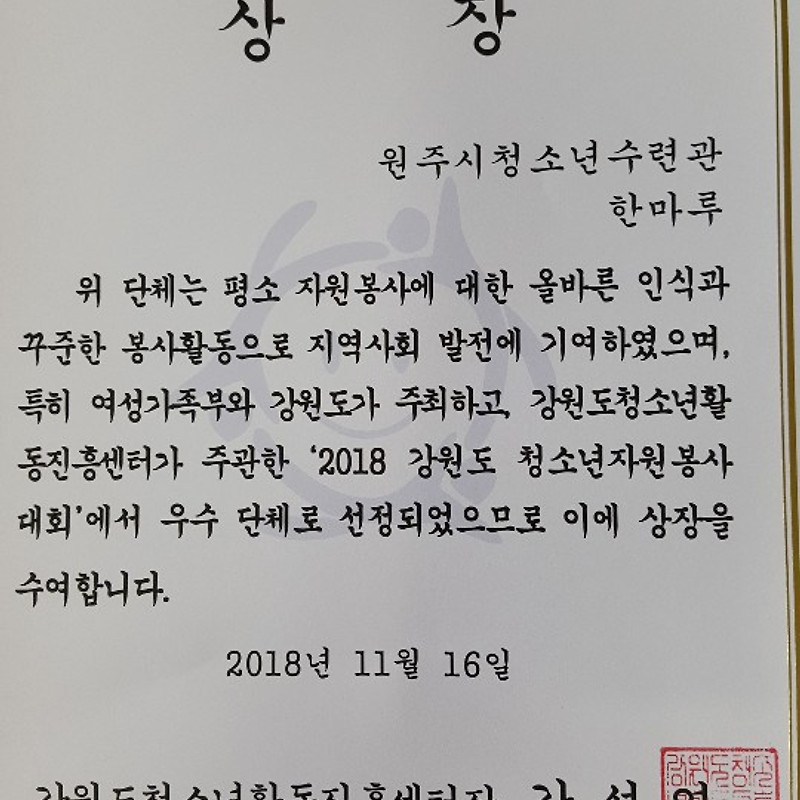 상 장
원주시청소년수련관
한마루
위 단체는 평소 자원봉사에 대한 올바른 인식과
꾸준한 봉사활동으로 지역사회 발전에 기여하였으며,
특히 여성가족부와 강원도가 주최하고, 강원도청소년활
동진흥센터가 주관한 '2018 강원도 청소년자원봉사
대회'에서 우수 단체로 선정되었으므로 이에 상장을
수여합니다.
2018년 11월 16일
강원도청소년활동진흥센터장